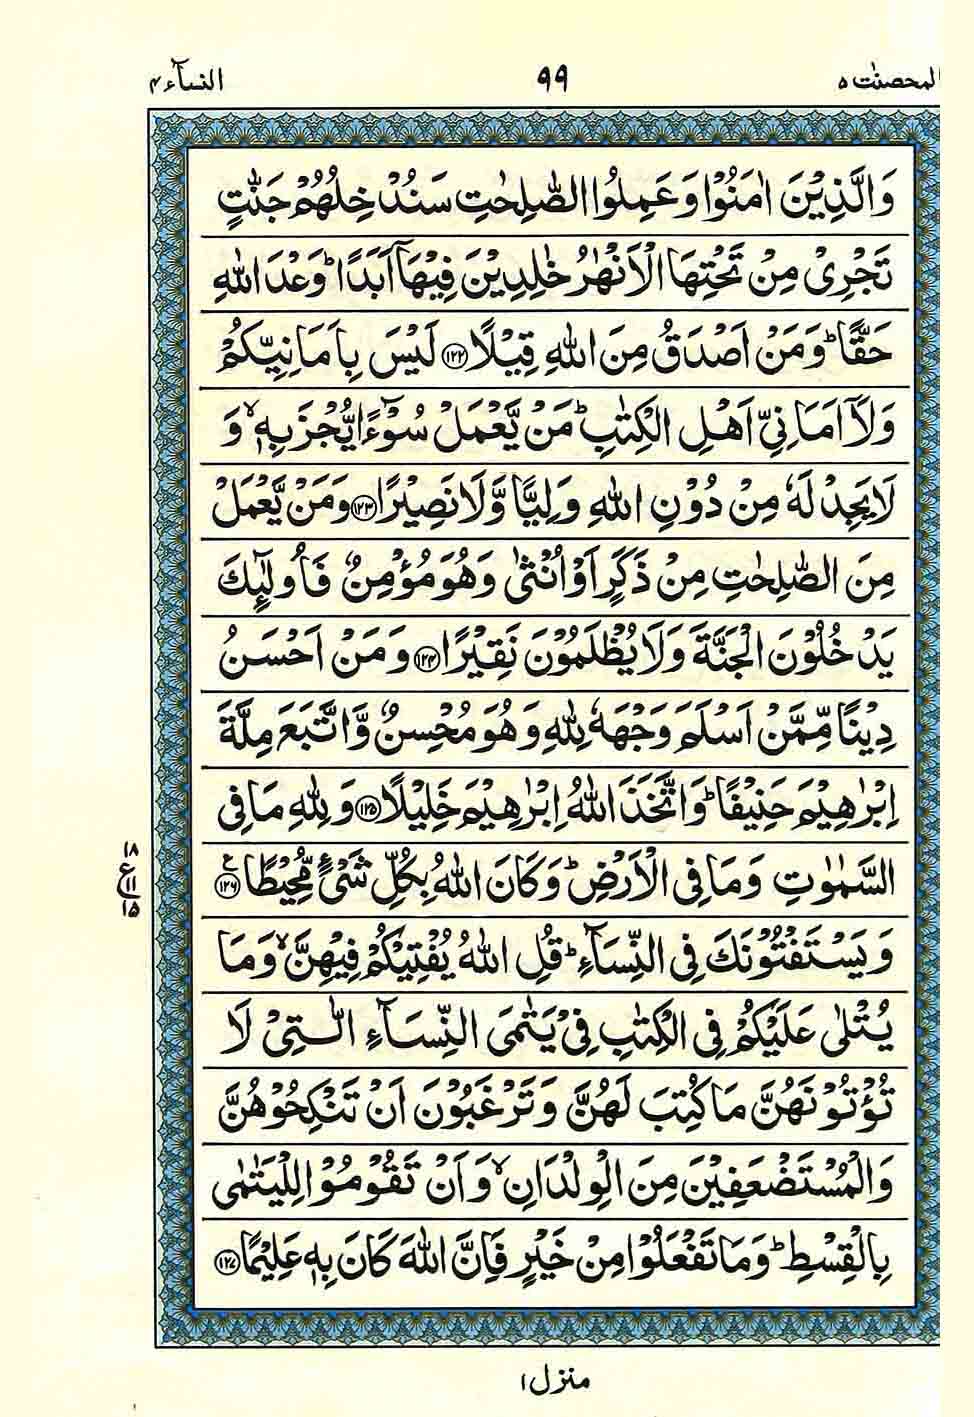 المحصنٰت ۵ ۹۹ النسآء ۴
وَالَّذِيْنَ اٰمَنُوْا وَعَمِلُوا الصّٰلِحٰتِ سَنُدْخِلُهُمْ جَنّٰتٍ
تَجْرِىْ مِنْ تَحْتِهَا الْاَنْهٰرُ خٰلِدِيْنَ فِيْهَآ اَبَدًا ؕ وَعْدَ اللّٰهِ
حَقًّا ؕ وَمَنْ اَصْدَقُ مِنَ اللّٰهِ قِيْلًا ﴿۱۲۲﴾ لَيْسَ بِاَمَانِيِّكُمْ
وَلَاۤ اَمَانِىِّ اَهْلِ الْكِتٰبِ ؕ مَنْ يَّعْمَلْ سُوْٓءًا يُّجْزَ بِهٖ ۙ وَ
لَا يَجِدْ لَهٗ مِنْ دُوْنِ اللّٰهِ وَلِيًّا وَّلَا نَصِيْرًا ﴿۱۲۳﴾ وَمَنْ يَّعْمَلْ
مِنَ الصّٰلِحٰتِ مِنْ ذَكَرٍ اَوْ اُنْثٰى وَهُوَ مُؤْمِنٌ فَاُولٰٓئِكَ
يَدْخُلُوْنَ الْجَنَّةَ وَلَا يُظْلَمُوْنَ نَقِيْرًا ﴿۱۲۴﴾ وَمَنْ اَحْسَنُ
دِيْنًا مِّمَّنْ اَسْلَمَ وَجْهَهٗ لِلّٰهِ وَهُوَ مُحْسِنٌ وَّاتَّبَعَ مِلَّةَ
اِبْرٰهِيْمَ حَنِيْفًا ؕ وَاتَّخَذَ اللّٰهُ اِبْرٰهِيْمَ خَلِيْلًا ﴿۱۲۵﴾ وَلِلّٰهِ مَا فِى
السَّمٰوٰتِ وَمَا فِى الْاَرْضِ ؕ وَكَانَ اللّٰهُ بِكُلِّ شَىْءٍ مُّحِيْطًا ﴿۱۲۶﴾ ع
۱۸
ع ۱۱
۱۵
وَيَسْتَفْتُوْنَكَ فِى النِّسَآءِ ؕ قُلِ اللّٰهُ يُفْتِيْكُمْ فِيْهِنَّ ۙ وَمَا
يُتْلٰى عَلَيْكُمْ فِى الْكِتٰبِ فِىْ يَتٰمَى النِّسَآءِ الّٰتِىْ لَا
تُؤْتُوْنَهُنَّ مَا كُتِبَ لَهُنَّ وَتَرْغَبُوْنَ اَنْ تَنْكِحُوْهُنَّ
وَالْمُسْتَضْعَفِيْنَ مِنَ الْوِلْدَانِ ۙ وَاَنْ تَقُوْمُوْا لِلْيَتٰمٰى
بِالْقِسْطِ ؕ وَمَا تَفْعَلُوْا مِنْ خَيْرٍ فَاِنَّ اللّٰهَ كَانَ بِهٖ عَلِيْمًا ﴿۱۲۷﴾
منزل ۱